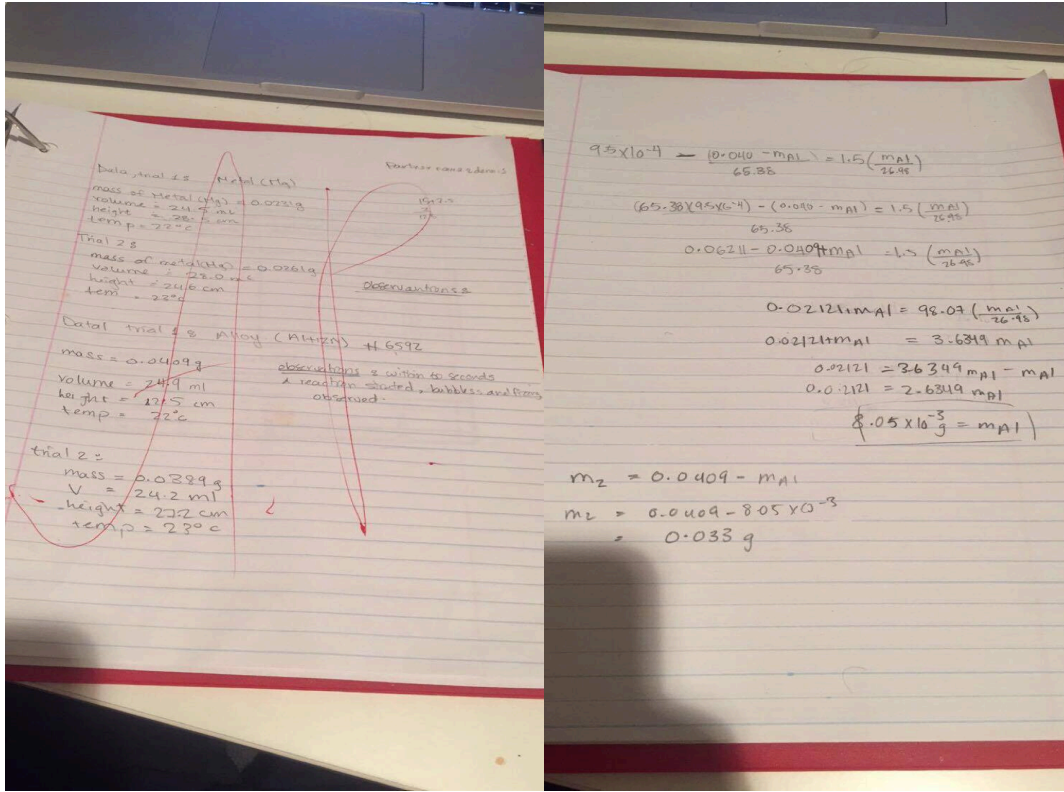 Data, trial 1 : Metal (Mg)
mass of Metal (Mg) = 0.0231g
volume = 24.5 mL
height = 28.5 cm
temp = 22°C
Trial 2 :
mass of metal (Mg) = 0.0261g
volume = 28.0 mL
height = 24.6 cm
tem = 23°C
observations :
Data1 trial 1 : Alloy (Al+Zn) # 6592
mass = 0.0409 g
volume = 24.9 ml
height = 27.5 cm
temp = 22°C
observations : within 10 seconds
reaction started, bubbles and fizzing
observed.
trial 2 :
mass = 0.0389 g
V = 24.2 ml
height = 27.2 cm
temp = 23°C
9.5 x 10^-4 - (0.040 - mAl) / 65.38 = 1.5 (mAl / 26.98)
(65.38)(9.5x10^-4) - (0.040 - mAl) / 65.38 = 1.5 (mAl / 26.98)
0.06211 - 0.0409 + mAl / 65.38 = 1.5 (mAl / 26.98)
0.02121 + mAl = 98.07 (mAl / 26.98)
0.02121 + mAl = 3.6349 mAl
0.02121 = 3.6349 mAl - mAl
0.02121 = 2.6349 mAl
8.05 x 10^-3 g = mAl
mz = 0.0409 - mAl
mz = 0.0409 - 8.05 x 10^-3
= 0.033 g